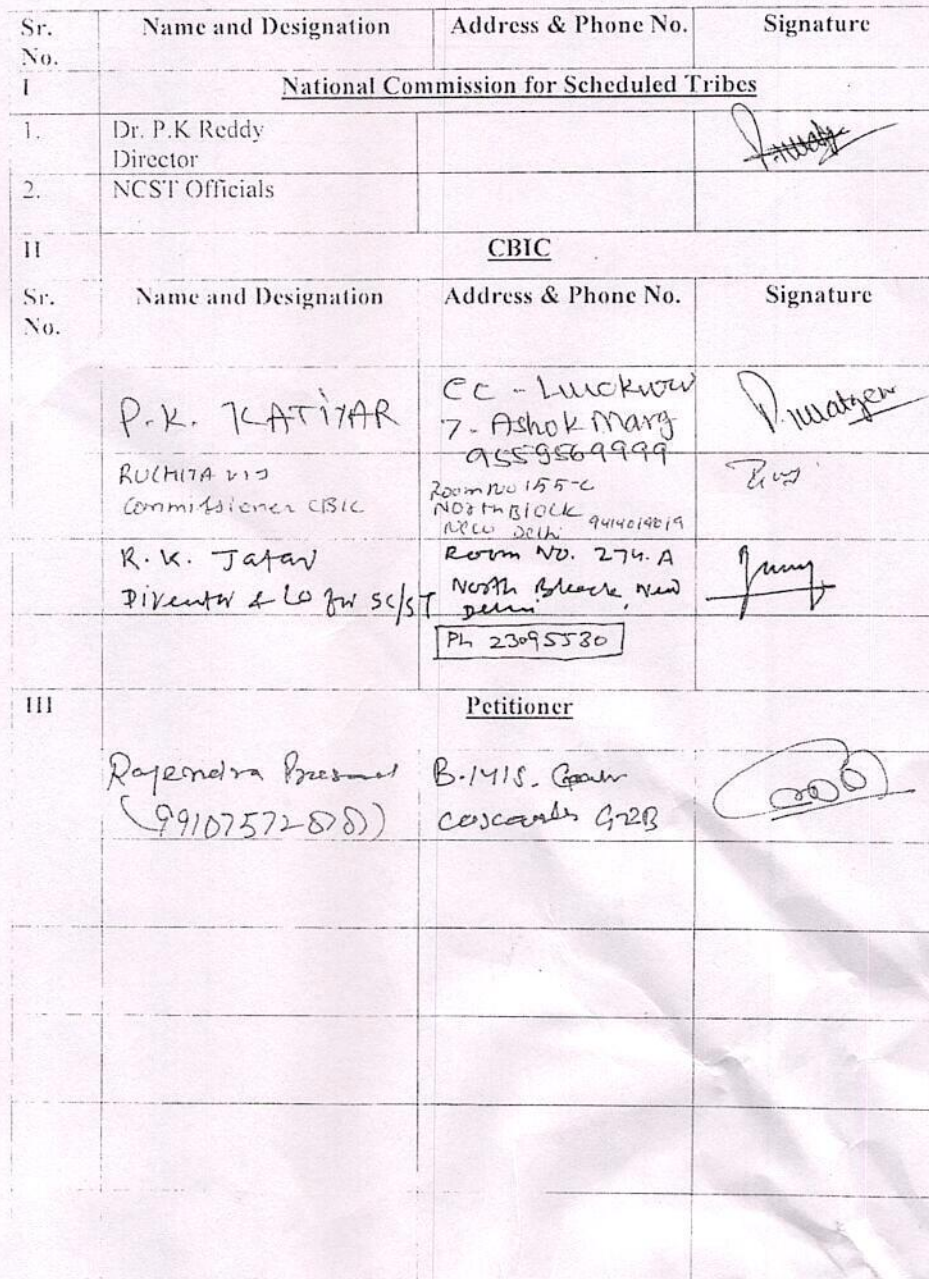 Sr. No. Name and Designation Address & Phone No. Signature
I National Commission for Scheduled Tribes
1. Dr. P.K Reddy
Director
2. NCST Officials
II CBIC
Sr. No. Name and Designation Address & Phone No. Signature
P.K. KATIYAR
CC - Lucknow
7- Ashok Marg
9559569999
RUCHITA VIJ
Commissioner CBIC
Room No 155-C
North Block
New Delhi
R.K.
Director & LO for SC/ST
Room No. 274. A
North Block, New
Delhi
Ph 23095530
III Petitioner
Rajendra
B-1415.